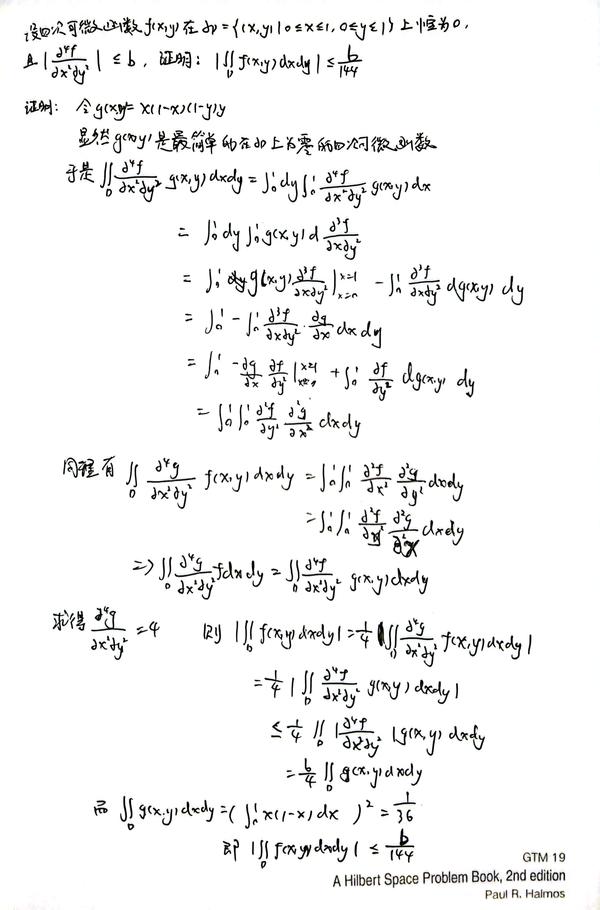 设四次可微函数 f(x,y) 在 ∂D = {(x,y)|0≤x≤1, 0≤y≤1} 上恒为0,
且 |∂⁴f/∂x²∂y²| ≤ b, 证明: |∬_D f(x,y)dxdy| ≤ b/144
证明: 令 g(x,y)= x(1-x)(1-y)y
显然 g(x,y) 是最简单的在∂D上为零的四次可微函数
于是 ∬_D ∂⁴f/∂x²∂y² g(x,y)dxdy = ∫₀¹dy∫₀¹ ∂⁴f/∂x²∂y² g(x,y)dx
= ∫₀¹dy∫₀¹ g(x,y) d ∂³f/∂x∂y²
= ∫₀¹ g(x,y) ∂³f/∂x∂y² |ₓ₌₀ˣ⁼¹ - ∫₀¹ ∂³f/∂x∂y² dg(x,y) dy
= ∫₀¹ -∫₀¹ ∂³f/∂x∂y² · ∂g/∂x dx dy
= ∫₀¹ -∂g/∂x ∂f/∂y² |ₓ₌₀ˣ⁼¹ + ∫₀¹ ∂f/∂y² dg(x,y) dy
= ∫₀¹∫₀¹ ∂²f/∂y² ∂²g/∂x² dxdy
同理有 ∬_D ∂⁴g/∂x²∂y² f(x,y)dxdy = ∫₀¹∫₀¹ ∂²f/∂x² ∂²g/∂y² dxdy
= ∫₀¹∫₀¹ ∂²f ∂²g dxdy
=> ∬_D ∂⁴g/∂x²∂y² f dxdy = ∬_D ∂⁴f/∂x²∂y² g(x,y)dxdy
求得 ∂⁴g/∂x²∂y² = 4 则 |∬_D f(x,y)dxdy| = 1/4 |∬_D ∂⁴g/∂x²∂y² f(x,y)dxdy|
= 1/4 |∬_D ∂⁴f/∂x²∂y² g(x,y)dxdy|
≤ 1/4 ∬_D |∂⁴f/∂x²∂y²| g(x,y)dxdy
= b/4 ∬_D g(x,y)dxdy
而 ∬_D g(x,y)dxdy = (∫₀¹ x(1-x)dx)² = 1/36
即 |∬_D f(x,y)dxdy| ≤ b/144
GTM 19
A Hilbert Space Problem Book, 2nd edition
Paul R. Halmos